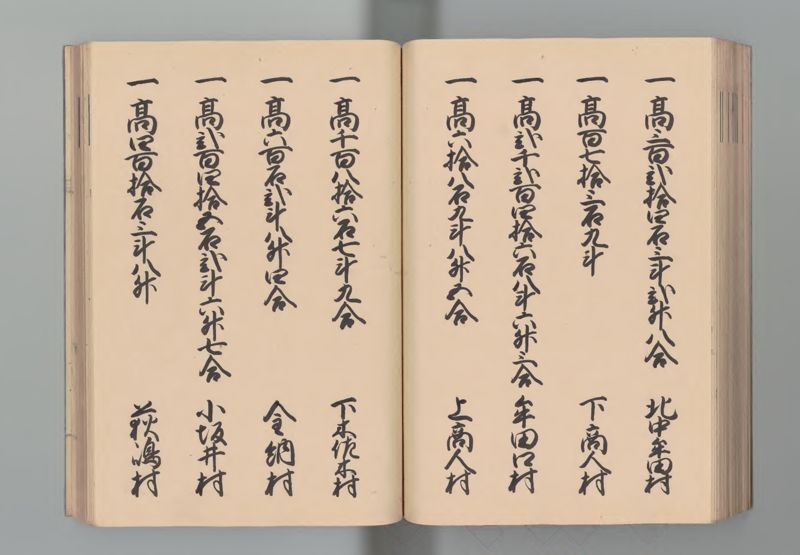 一 高三百弐拾四石三斗弐升八合 北中牟田村
一 高百七拾三石九斗 下高人村
一 高弐千弐百四拾六石八斗六升三合 牟田口村
一 高六拾八石九斗八升五合 上高人村
一 高千百八拾六石七斗九合 下木佐木村
一 高六百石弐斗八升四合 金網村
一 高弐百四拾五石弐斗六升七合 小坂井村
一 高四百拾石三斗八升 荻嶋村